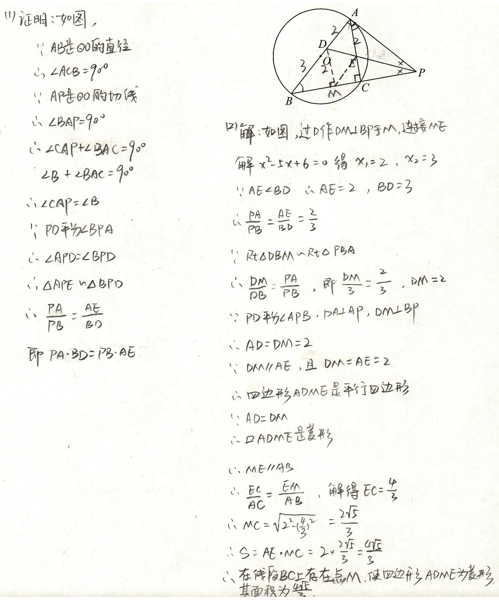 (1) 证明:如图,
∵ AB是⊙O的直径
∴ ∠ACB=90°
∵ AP是⊙O的切线
∴ ∠BAP=90°
∴ ∠CAP+∠BAC=90°
∠B+∠BAC=90°
∴ ∠CAP=∠B
∵ PD平分∠BPA
∴ ∠APD=∠BPD
∴ △APE∽△BPD
∴ PA/PB = AE/BD
即 PA·BD=PB·AE
A
2
2
D
O
E
3
2
P
B
M
C
(2) 解:如图,过D作DM⊥BP于M,连接ME
解 x²-5x+6=0 得 x₁=2, x₂=3
∵ AE<BD ∴ AE=2, BD=3
∴ PA/PB = AE/BD = 2/3
∵ Rt△DBM∽Rt△PBA
∴ DM/DB = PA/PB, 即 DM/3 = 2/3, DM=2
∵ PD平分∠APB, DA⊥AP, DM⊥BP
∴ AD=DM=2
∵ DM∥AE, 且 DM=AE=2
∴ 四边形ADME是平行四边形
∵ AD=DM
∴ ▱ADME是菱形
∴ ME∥AB
∴ EC/AC = EM/AB, 解得 EC=4/3
∴ MC=√(2²-(4/3)²) = 2√5/3
∴ S=AE·MC=2×2√5/3=4√5/3
∴ 在线段BC上存在点M,使四边形ADME为菱形,
其面积为4√5/3